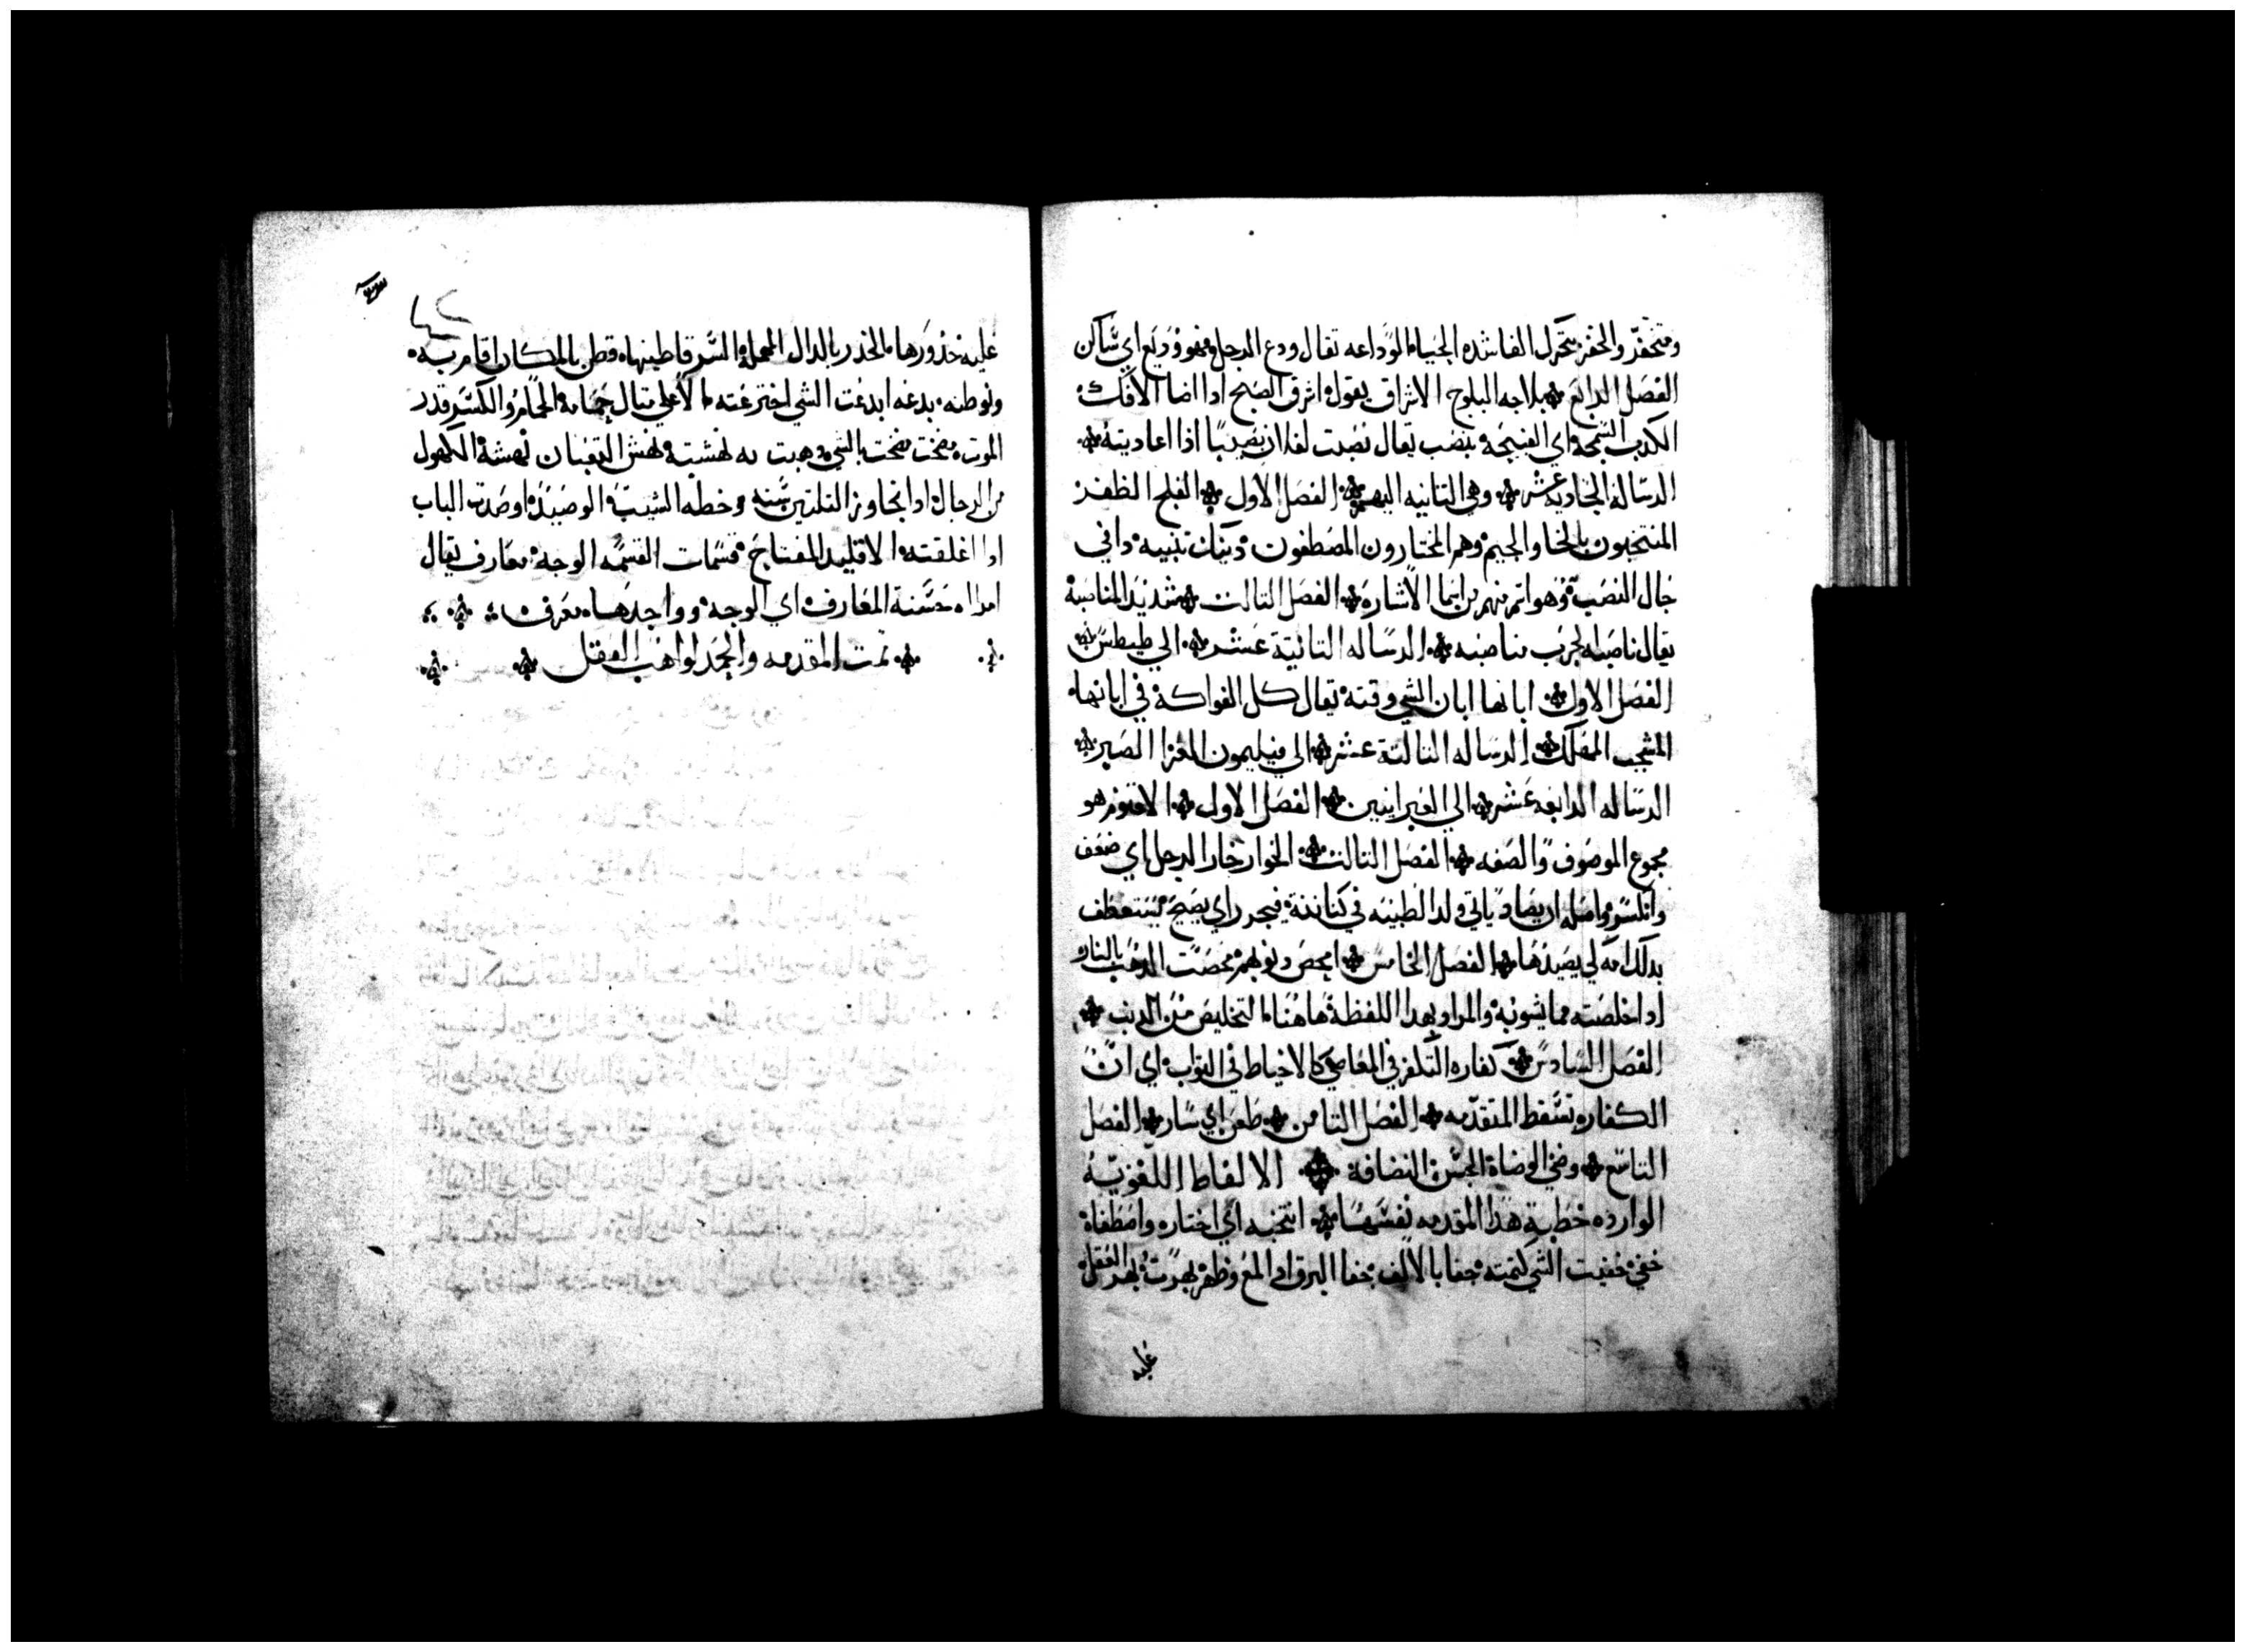 ومتخفر والخفر بتحرك الفا شده الحياء الوداعه تقال ودع الرجل فهو وديع اي ساكن
الفصل الرابع بلاجه البلوج الاشراق يقول اشرق الصبح اذا اضا الافك
الكدب السمجه اي القبيحه بنصب تقال نصبت لفلان نصبا اذا عاديته
الرساله الحاديه عشر وهي التانيه اليهم الفصل الاول الفلج الظفر
المنتخبون بالخا والجيم وهم المختارون المصطفون دينك تثنيه دا في
حال النصب وهو اسم مبهم من اسما الاشاره الفصل التالت شديد المناصبة
يقال ناصبه لحرب مناصبه الرساله التانية عشر الي طيطس
الفصل الاول ابانها ابان الشي وقته تقال كل الفواكة في ابانها
الشجب المهلك الرساله التالتة عشر الي فيليمون العزا الصبر
الرساله الرابعه عشر الي العبرانيين الفصل الاول الاقنوم هو
مجموع الموصوف والصفه الفصل التالت الخوار خار الرجل اي ضعف
وانكسر واصله ان يصاد ياتي ولد الظبيته في كناسة فيخور اي يصيح يستعطف
بدلك امه لي يصيدها الفصل الخامس امحص دنوبهم محصت الدهب بالنار
ادا خلصته مما يشوبه والمراد بهدا اللفظة هاهنا التخليص من الدنب
الفصل السادس كفاره التكفر في المعاصي كالاحباط في التواب اي ان
الكفاره تسقط المتقدمه الفصل التامن ظعن اي سار الفصل
التاسع وضي الوضاة الحسن النضافة الالفاظ اللغوية
الوارده خطبة هدا المقدمه نفسها انتخبه اي اختاره واصطفاة
خفي خفيت الشي كتمته خفا بالالف خفا البرق ادا لمع وظهر بهرت بهر العقل
عليه
عليه خدورها الخدر بالدال المهملة الستر قاطنها قطن بالمكان اقام به
وتوطنه بدعه ابدعت الشي اخترعته لا علي متال حمامة الحمام والكسر قدر
الموت نهشته نهش التعبان نهشة الكهول
من الرجال ادا تجاوز التلتين سنه وخطه الشيب الوصيد اوصدت الباب
ادا اغلقته الاقليد المفتاح قسمات القسمه الوجه معارف يقال
امراه حسنة المعارف اي الوجه وواحدها معرف
تمت المقدمه والحمد لواهب العقل